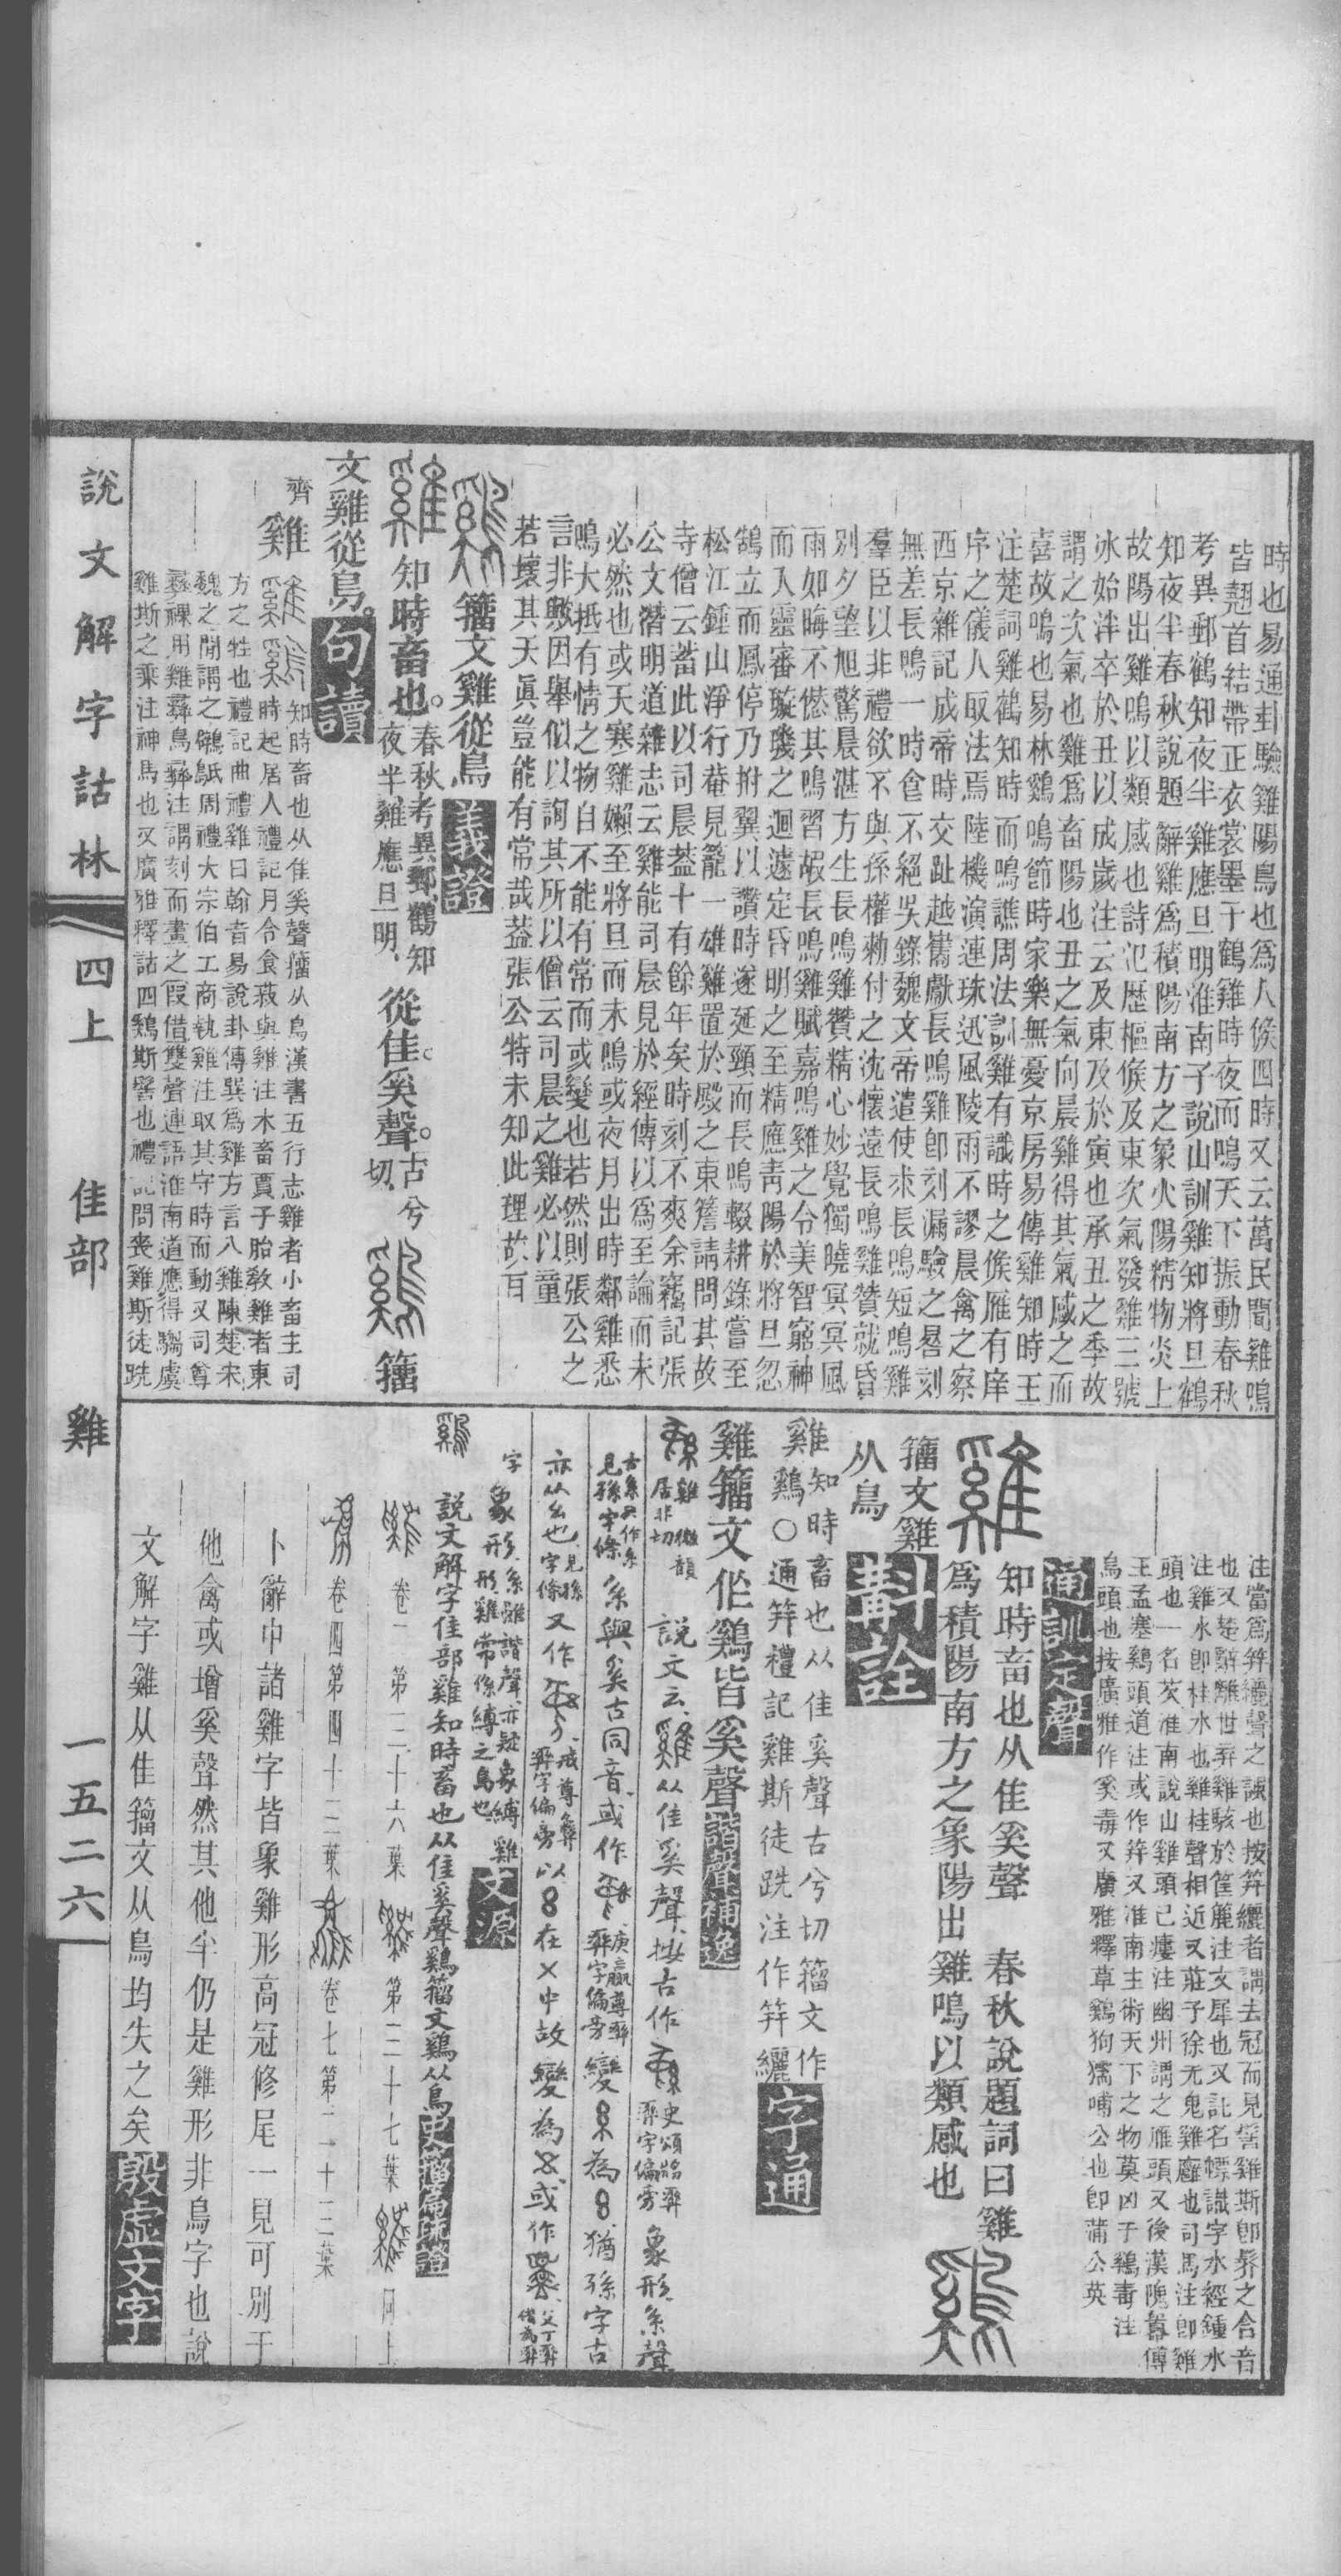 時也易通卦驗雞陽鳥也爲人候四時又云萬民閒雞鳴
皆翹首結帶正衣裳墨子鶴雞時夜而鳴天下振動春秋
考異郵鶴知夜半雞應旦明淮南子說山訓雞知將旦鶴
知夜半春秋說題辭雞爲積陽南方之象火陽精物炎上
故陽出雞鳴以類感也詩氾歷樞候及東次氣發雞三號
冰始泮卒於丑以成歲注云及東及於寅也承丑之季故
謂之次氣也雞爲畜陽也丑之氣向晨雞得其氣感之而
喜故鳴也易林雞鳴節時家樂無憂京房易傳雞知時王
注楚詞雞鶴知時而鳴譙周法訓雞有識時之候雁有庠
序之儀人取法焉陸機演連珠迅風陵雨不謬晨禽之察
西京雜記成帝時交趾越巂獻長鳴雞卽刻漏驗之晷刻
無差長鳴一時食不絕吳錄魏文帝遣使求長鳴短鳴雞
羣臣以非禮欲不與孫權勑付之沈懷遠長鳴雞贊就昏
別夕望旭驚晨湛方生長鳴雞贊精心妙覺獨曉冥冥風
雨如晦不倦其鳴習嘏長鳴雞賦嘉鳴雞之令美智窮神
而入靈審璇璣之迴遽定昏明之至精應靑陽於將旦忽
鵠立而鳳停乃拊翼以讚時遂延頸而長鳴輟耕錄嘗至
松江鍾山淨行菴見籠一雄雞置於殿之東簷請問其故
寺僧云蓄此以司晨葢十有餘年矣時刻不爽余竊記張
公文潛明道雜志云雞能司晨見於經傳以爲至論而未
必然也或天寒雞嬾至將旦而未鳴或夜月出時鄰雞悉
鳴大抵有情之物自不能有常而或變也若然則張公之
言非歟因舉似以詢其所以僧云司晨之雞必以童
若壞其天眞豈能有常哉葢張公特未知此理故百
籒文雞從鳥 義證
知時畜也。春秋考異郵鶴知夜半雞應旦明、從隹。奚聲。古兮切、 籒
文雞從鳥。 句讀
齊 雞
知時畜也从隹奚聲籒从鳥漢書五行志雞者小畜主司
時起居人禮記月令食菽與雞注木畜賈子胎敎雞者東
方之牲也禮記曲禮雞曰翰音易說卦傳巽爲雞方言八雞陳楚宋
魏之閒謂之䴙䳟周禮大宗伯工商執雞注取其守時而動又司尊
彝祼用雞彝鳥彝注謂刻而畫之叚借雙聲連語淮南道應得騶虞
雞斯之乘注神馬也又廣雅釋詁四鷄斯䯻也禮記問喪雞斯徒跣
注當爲笄纚聲之誤也按笄纚者謂去冠而見䯻雞斯卽髺之合音
也又楚辭離世荓雞駭於筐簏注文犀也又託名幖識字水經鍾水
注雞水卽桂水也雞桂聲相近又莊子徐无鬼雞廱也司馬注卽雞
頭也一名芡淮南說山雞頭已瘻注幽州謂之雁頭又後漢隗囂傳
王孟塞雞頭道注或作笄又淮南主術天下之物莫凶于鷄毒注
烏頭也按廣雅作奚毒又廣雅釋草鷄狗獳哺公也卽蒲公英
通訓定聲
知時畜也从隹奚聲 春秋說題詞曰雞
爲積陽南方之象陽出雞鳴以類感也
籒文雞
从鳥 斠詮
雞知時畜也从隹奚聲古兮切籒文作
鷄〇通笄禮記雞斯徒跣注作笄纚 字通
雞籒文作鷄皆奚聲 諧聲補逸
雞 微韻居非切 說文云、从隹奚聲、按古作 象形、系聲
系與奚古同音、或作 變 爲 猶孫字古
亦从幺也、見孫字條 又作 以 在 中故變爲 或作
字 象形、系雖諧聲、亦疑象縛雞形、雞常係縛之鳥也、 文源
說文解字隹部雞知時畜也从隹奚聲鷄籒文雞从鳥 史籒篇疏證
卷一第二十六葉 第二十七葉 同上
卷四第四十二葉 卷七第二十三葉
卜辭中諸雞字皆象雞形高冠修尾一見可別于
他禽或增奚聲然其他半仍是雞形非鳥字也說
文解字雞从隹籒文从鳥均失之矣 殷虛文字
說文解字詁林 四上 隹部 雞 一五二六